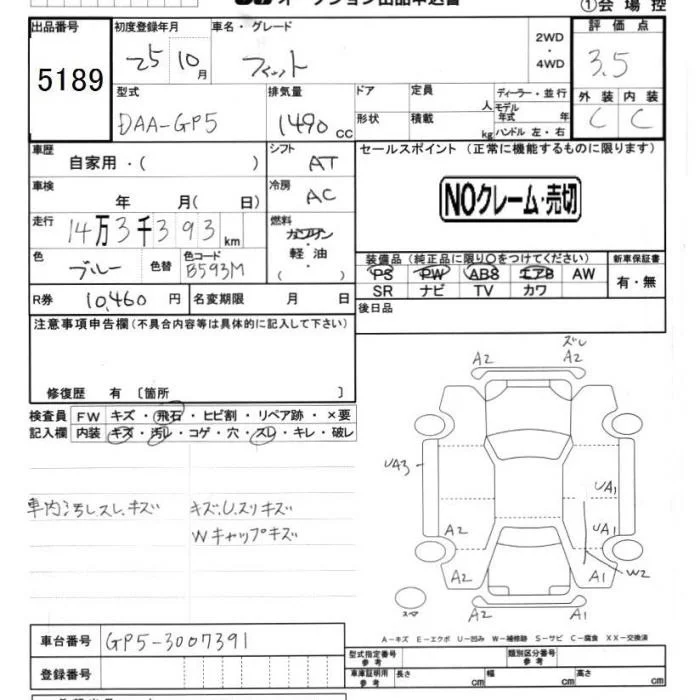 オークション出品申込書
①会場控
出品番号
5189
初度登録年月
25 10月
車名・グレード
フィット
2WD
・
4WD
評価点
3.5
外装 内装
C C
型式
DAA-GP5
排気量
1490 cc
ドア
形状
定員 人
積載 kg
ディーラー・並行
モデル年式 年
ハンドル 左・右
車歴
自家用・( )
シフト
AT
車検
年 月( 日)
冷房
AC
走行
14万3千393km
燃料
ガソリン
軽油
( )
色
ブルー
色替
色コード
B593M
R券 10,460 円
名変期限 月 日
セールスポイント (正常に機能するものに限ります)
NOクレーム・売切
装備品 (純正品に限り○をつけてください)
PS PW ABS エアB AW
SR ナビ TV カワ
新車保証書
有・無
後日品
注意事項申告欄 (不具合内容等は具体的に記入して下さい)
修復歴 有 〔箇所 〕
検査員記入欄
FW キズ・飛石・ヒビ割・リペア跡・×要
内装 キズ・汚レ・コゲ・穴・スレ・キレ・破レ
車内汚レスレ、キズ
キズ.U.スリキズ
Wキャップキズ
ズレ
A2 A2
UA3
UA1
A2 UA1
A2 A1 W2
A2 A2
スマ
A−キズ E−エクボ U−凹み W−補修跡 S−サビ C−腐食 XX−交換済
車台番号 GP5-3007391
登録番号
型式指定番号 参考
類別区分番号 参考
車庫証明用 参考
長さ cm 幅 cm 高さ cm